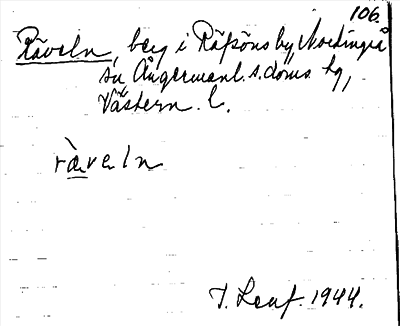 106
Räveln, berg i Räfsöns by, Nordingrå
sn Ångermanl. s. döms hg,
Västern. l.
ræveln
1944.